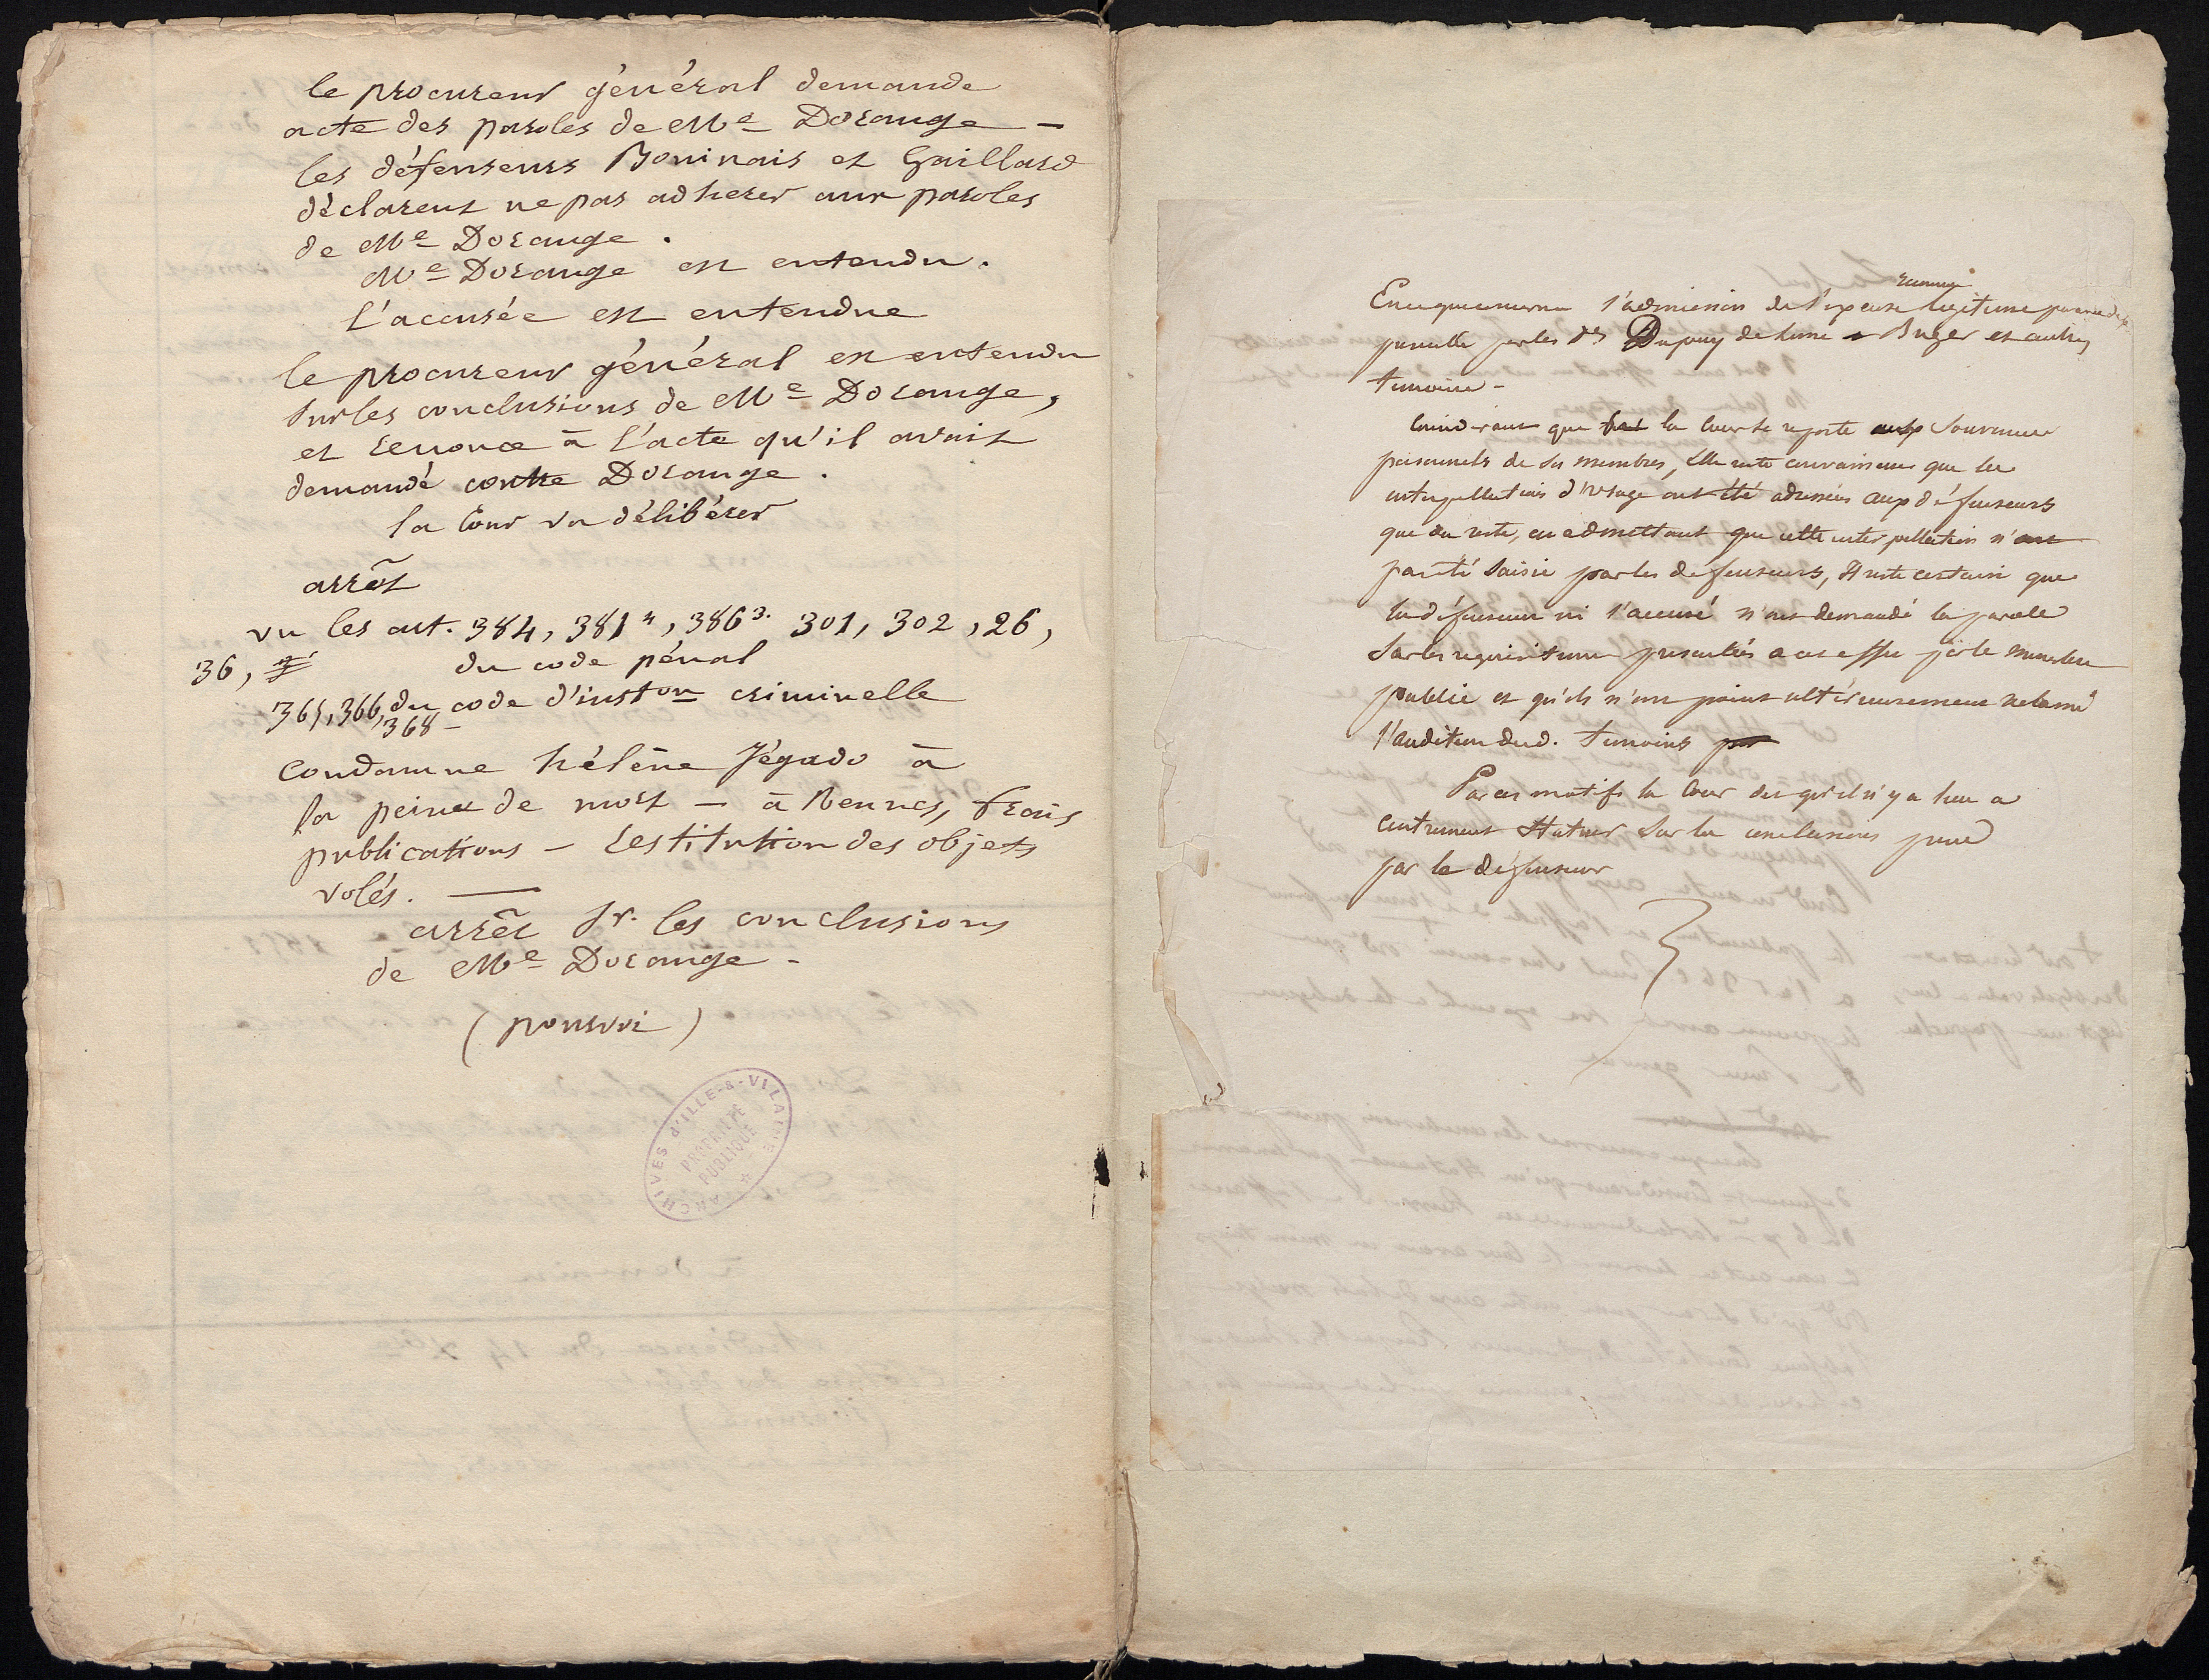 le procureur général demande
acte des paroles de Me Dorange —
les défenseurs Bouinais et Guillard
déclarent ne pas adherer aux paroles
de Me Dorange.
Me Dorange est entendu.
l'accusée est entendue
le procureur général est entendu
sur les conclusions de Me Dorange,
et renonce à l'acte qu'il avait
demandé contre Dorange.
la Cour va délibérer
arrêt
vu les art. 384, 381 4, 386 3. 301, 302, 26,
36, du code pénal
365, 366, du code d'inston criminelle
368 —
Condamne hélène Jégado à
la peine de mort — à Rennes, frais
publications — restitution des objets
volés. —
arrêt sr. les conclusions
de Me Dorange —
(pourvoi)
ARCHIVES d'ILLE-&-VILAINE
PROPRIÉTÉ
PUBLIQUE
l'admission de l'excuse legitime
par les Srs Dupuy de Lome Buger et autres
temoins —
Considerant que la Cour se reporte aux souvenirs
personnels de ses membres, elle reste convaincue que les
interpellations d'usage ont été adressées aux défenseurs
que du reste, en admettant que cette interpellation n'ait
pas été saisie par les defenseurs, il reste certain que
le défenseur ni l'accusé n'ont demandé la parole
sur les requisitions presentées a cet effet par le ministere
public et qu'ils n'ont point ultérieurement reclamé
l'audition desd. temoins
Par ces motifs la Cour dit qu'il n'y a lieu a
autrement statuer sur les conclusions
par le défenseur